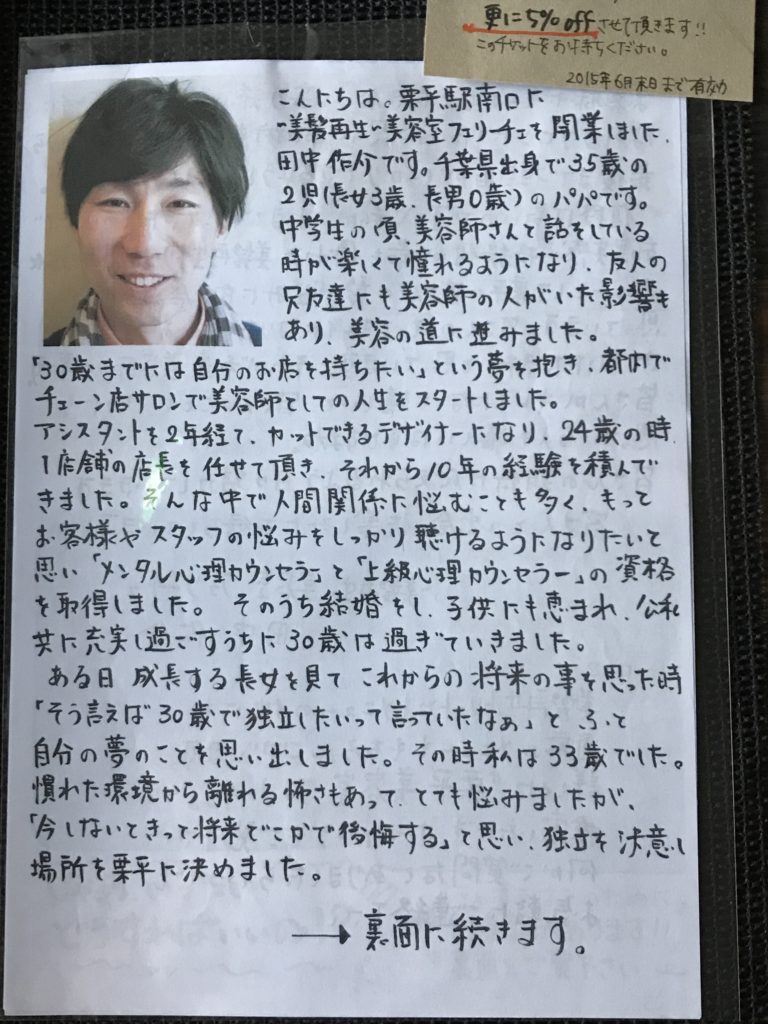 更に5%offさせて頂きます!!
このチケットをお持ちください。
2015年6月末日まで有効
こんにちは。栗平駅南口に
"美髪再生"美容室フェリーチェを開業しました、
田中作介です。千葉県出身で35歳の
2児(長女3歳、長男0歳)のパパです。
中学生の頃、美容師さんと話をしている
時が楽しくて憧れるようになり、友人の
兄方達にも美容師の人がいた影響も
あり、美容の道に進みました。
「30歳までには自分のお店を持ちたい」という夢を抱き、都内で
チェーン店サロンで美容師としての人生をスタートしました。
アシスタントを2年経て、カットできるデザイナーになり、24歳の時、
1店舗の店長を任せて頂き、それから10年の経験を積んで
きました。そんな中で人間関係に悩むことも多く、もって
お客様やスタッフの悩みをしっかり聴けるようになりたいと
思い「メンタル心理カウンセラー」と「上級心理カウンセラー」の資格
を取得しました。そのうち結婚をし、子供にも恵まれ、公私
共に充実し過ごすうちに30歳は過ぎていきました。
ある日 成長する長女を見て これからの将来の事を思った時
「そう言えば30歳で独立したいって言っていたなぁ」と ふと
自分の夢のことを思い出しました。その時私は33歳でした。
慣れた環境から離れる怖さもあって、とても悩みましたが、
「今しないときって将来でこかで後悔する」と思い、独立を決意し
場所を栗平に決めました。
→ 裏面に続きます。